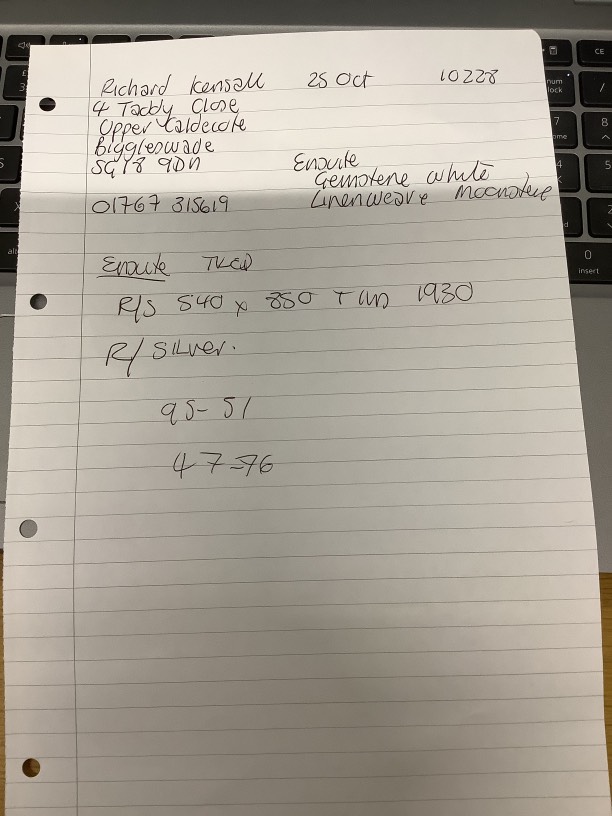 Richard Kensall 25 Oct 10228
4 Taddy Close
Upper Caldecote
Biggleswade
SG18 9DN Ensuite
Gemstone white
01767 315619 Linenweave Moonstone
Ensuite
R/S 540 x 850 T 1930
R/SILVER.
95-51
47=76